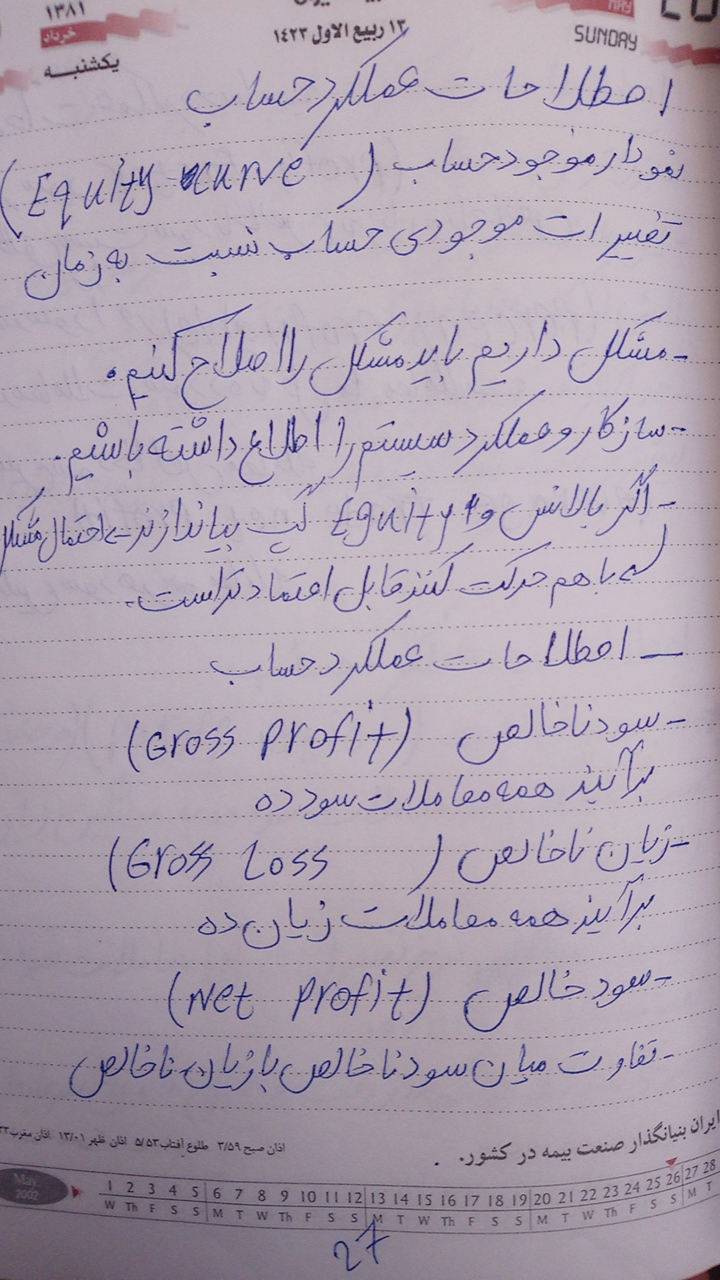 ۱۳۸۱
خرداد
یکشنبه
۱۳ ربیع الاول ۱۴۲۳
MAY
SUNDAY
اصطلاحات عملکرد حساب
نمودار موجود حساب (Equity curve)
تغییرات موجودی حساب نسبت به زمان
- مشکل داریم باید مشکل را اصلاح کنیم.
- ساز کار و عملکرد سیستم را اطلاع داشته باشیم.
- اگر بالانس و Equity گپ بیاندازند → احتمال مشکل
↳ با هم حرکت کنند قابل اعتماد تر است.
— اصطلاحات عملکرد حساب
- سود ناخالص (Gross Profit)
برآیند همه معاملات سود ده
- زیان ناخالص (Gross Loss)
برآیند همه معاملات زیان ده
- سود خالص (Net Profit)
- تفاوت میان سود ناخالص با زیان ناخالص
ایران بنیانگذار صنعت بیمه در کشور.
اذان صبح ۳/۵۹ طلوع آفتاب ۵/۵۳ اذان ظهر ۱۳/۰۱ اذان مغرب
May 2002
1 2 3 4 5 6 7 8 9 10 11 12 13 14 15 16 17 18 19 20 21 22 23 24 25 26 27 28
W Th F S S M T W Th F S S M T W Th F S S M T W Th F S S M T
27